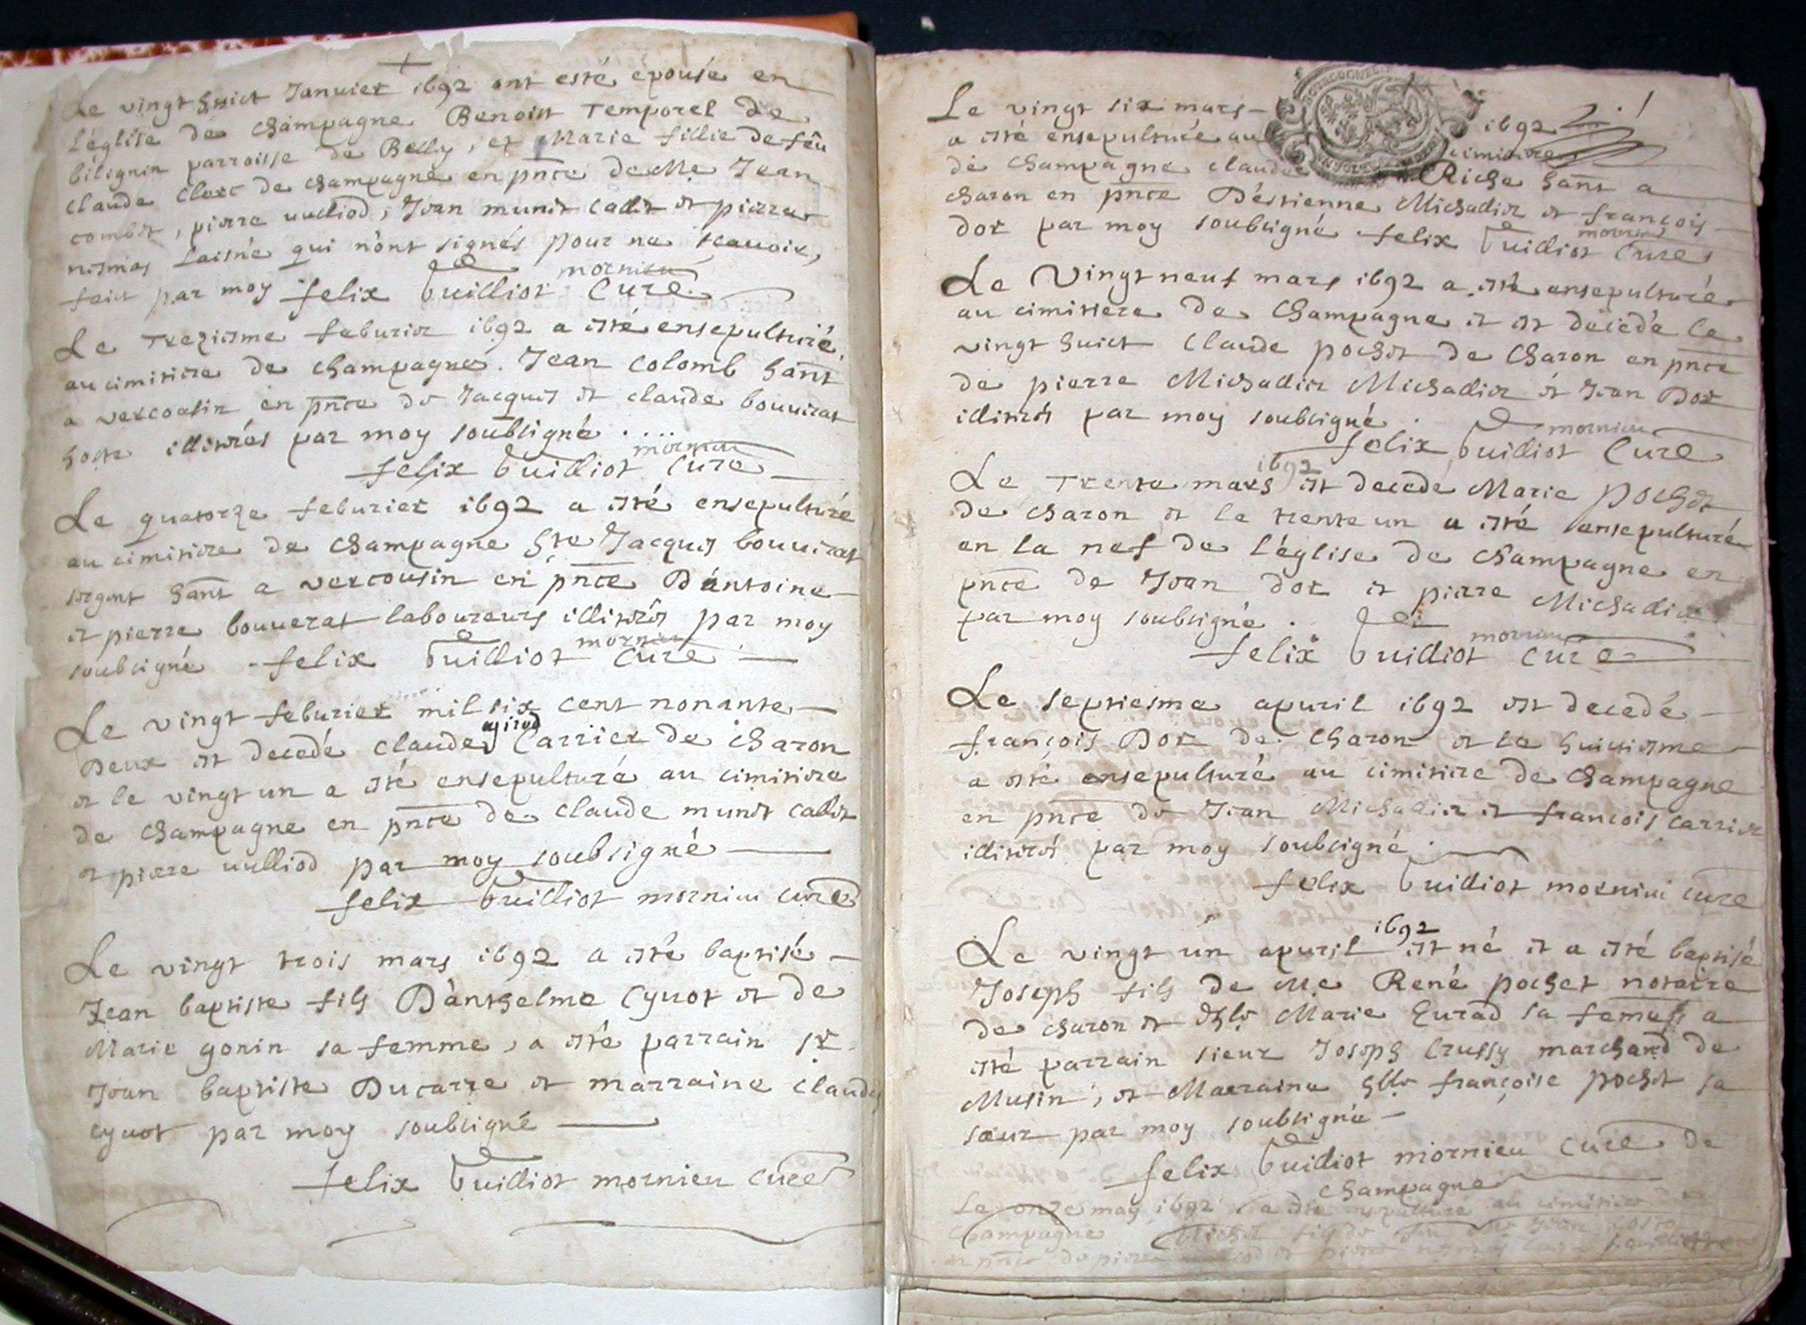 Le vingt huict Januier 1692 ont esté épousé en
l'église de champagne Benoist Temporel de
bélignin parroisse de Belly, et Marie fillie de feu
claude Clerc de champagne en pnce de Me Jean
combet, pierre vulliod, Jean munet cadet et pierre
l'aisné qui n'ont signés pour ne scauoir,
faict par moy felix Vuilliot Curé
mornieu
Le Treziesme feburier 1692 a esté ensepulturé
au cimitiere de champagne. Jean Colomb hañt
a vercoasin en pnce de Jacques et claude bouuerat
hoste illitérés par moy soubsigné
felix Vuilliot Curé
mornieu
Le quatorze feburier 1692 a esté ensepulturé
au cimitiere de champagne hste Jacques bouuerat
sergent hañt a vercousin en pnce D'antoine
et pierre bouuerat laboureurs illiterés par moy
soubsigné felix Vuilliot Curé
mornieu
Le vingt feburier mil six cent nonante
Deux est decedé claude Carrier de charon
et le vingt un a esté ensepulturé au cimitiere
de champagne en pnce de claude munet cadet
et pierre vulliod par moy soubsigné
felix Vuilliot mornieu curé
Le vingt trois mars 1692 a esté baptisé
Jean baptiste fils D'anthelme Cyuot et de
Marie gonin sa femme, a esté parrain sr
Jean baptiste Ducarre et marraine Claude
cyuot par moy soubsigné
felix Vuilliot mornieu Curé
2. 1
Le vingt six mars 1692
a esté ensepulturé au cimitiere
de champagne claude Riche hañt a
charon en pnce D'estienne Michadier et françois
Dor par moy soubsigné felix Vuilliot Curé
mornieu
Le Vingt neuf mars 1692 a esté ensepulturé
au cimitiere de Champagne et est décédé le
vingt huict Claude pochet de Charon en pnce
de pierre Michadier Michadier et Jean Dor
illiterés par moy soubsigné
felix Vuilliot Curé
mornieu
Le Trente mars 1692 est decede Marie pochet
de charon et le trente un a esté ensepulturé
en la nef de l'église de champagne en
pnce de Jean Dor et pierre Michadier
par moy soubsigné
felix Vuilliot Curé
mornieu
Le septiesme apuril 1692 est decedé
françois Dor de Charon et le huictiesme
a esté ensepulturé au cimitiere de champagne
en pnce de Jean Michadier et françois carrier
illiterés par moy soubsigné
felix Vuilliot mornieu curé
Le vingt un apuril 1692 est né et a esté baptisé
Joseph fils de Me René pochet notaire
de charon et Marie Eurad sa femme a
esté parrain sieur Joseph Crussy marchand de
Musin, et Marraine françoise pochet sa
sœur par moy soubsigné
felix Vuilliot mornieu Curé de
champagne
Le onze may 1692 a esté ensepulturé au cimitiere de
Champagne